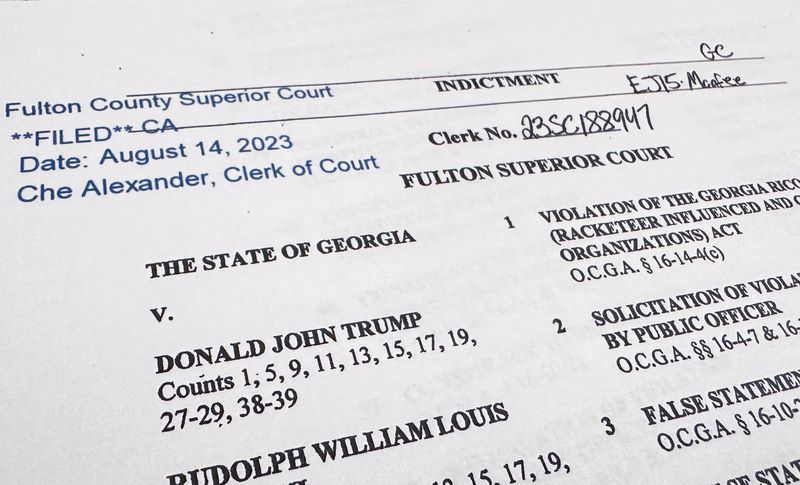 GC
INDICTMENT
EJ15. McAfee
Fulton County Superior Court
**FILED** CA
Date: August 14, 2023
Che Alexander, Clerk of Court
Clerk No. 23SC188947
FULTON SUPERIOR COURT
THE STATE OF GEORGIA
V.
DONALD JOHN TRUMP
Counts 1, 5, 9, 11, 13, 15, 17, 19,
27-29, 38-39
RUDOLPH WILLIAM LOUIS
15, 17, 19,
1 VIOLATION OF THE GEORGIA RICO
(RACKETEER INFLUENCED AND
ORGANIZATIONS) ACT
O.C.G.A. § 16-14-4(c)
2 SOLICITATION OF
BY PUBLIC OFFICER
O.C.G.A. §§ 16-4-7 & 16-
3 FALSE
O.C.G.A. § 16-10-